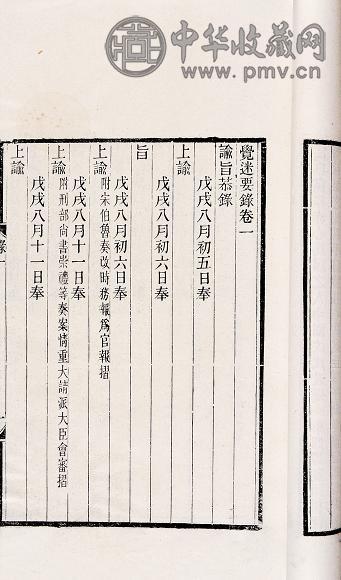 中华收藏网
www.pmv.cn
覺迷要錄卷一
諭旨恭錄
戊戌八月初五日奉
上諭
戊戌八月初六日奉
旨
戊戌八月初六日奉
上諭附宋伯魯奏改時務報爲官報摺
戊戌八月十一日奉
上諭附刑部尚書崇禮等奏案情重大請派大臣會審摺
戊戌八月十一日奉
上諭